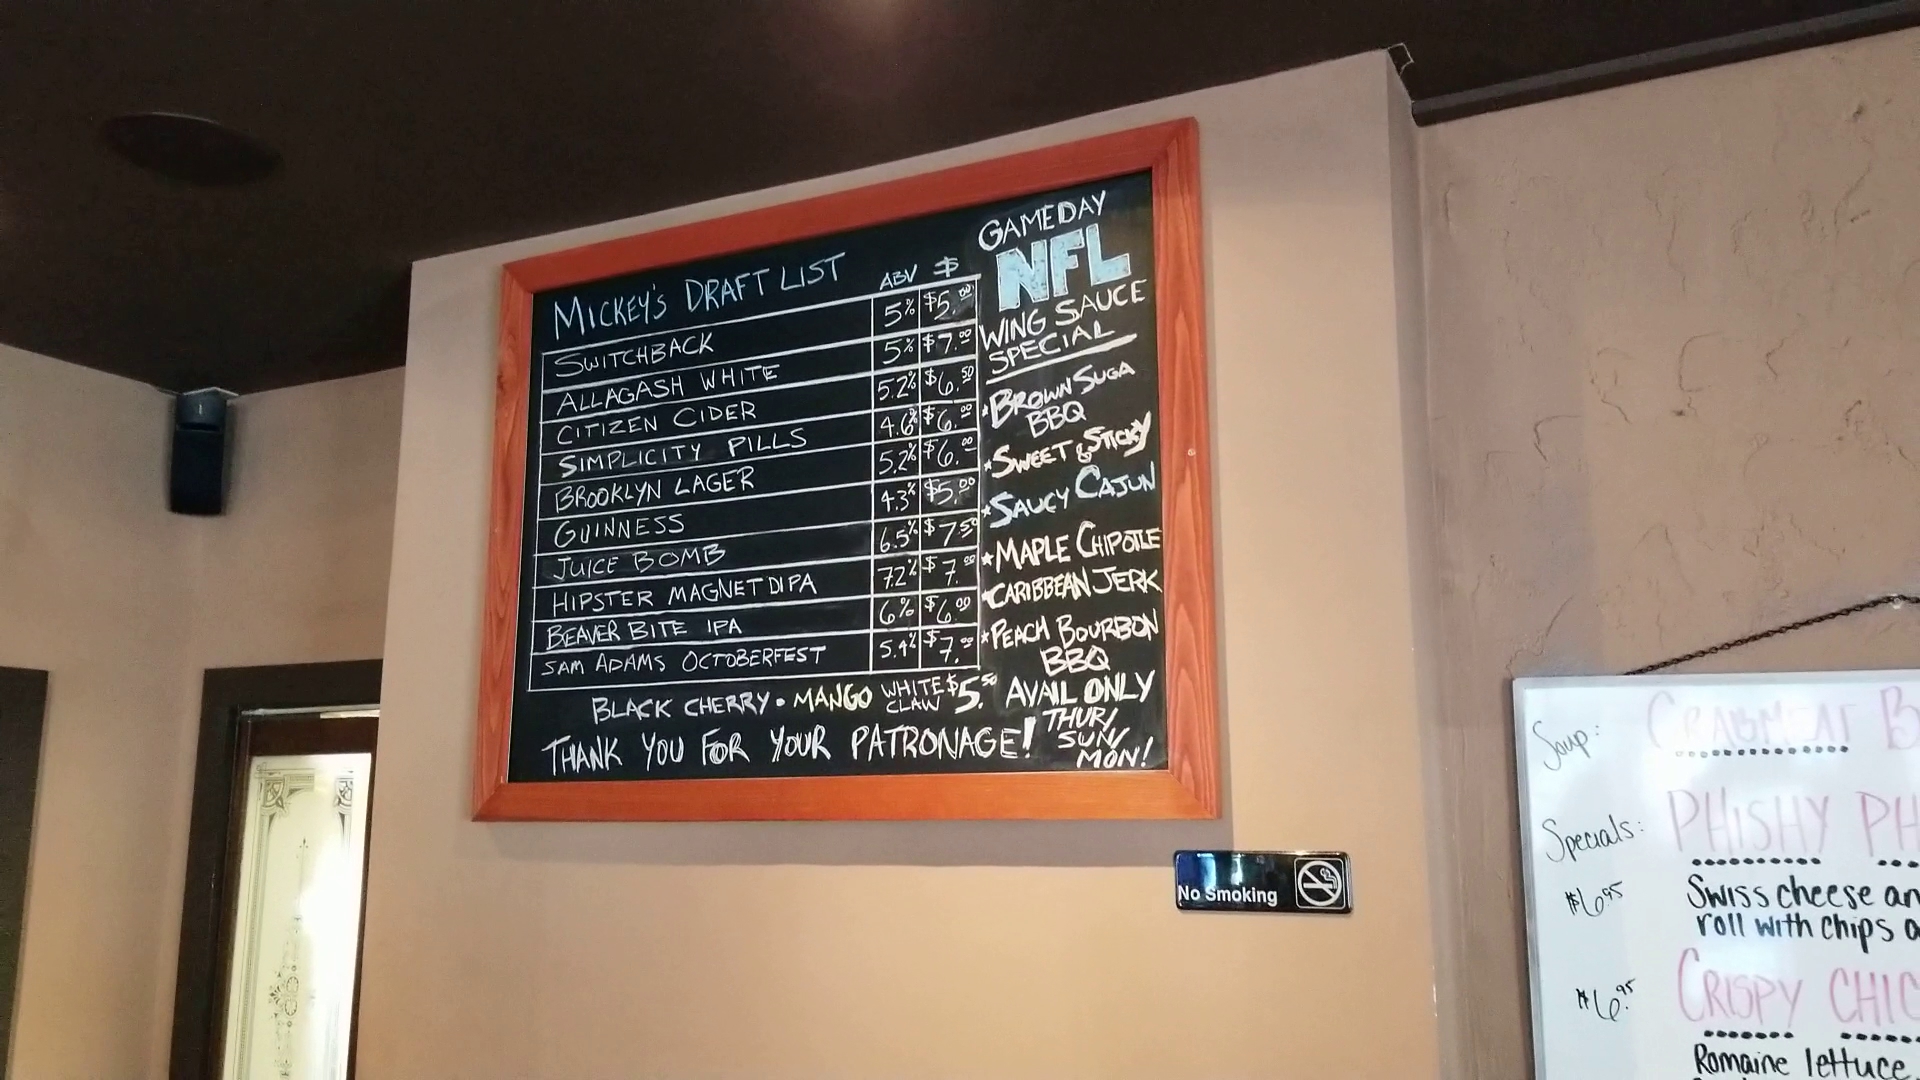 MICKEY'S DRAFT LIST ABV $
SWITCHBACK 5% $5.00
ALLAGASH WHITE 5% $7.00
CITIZEN CIDER 5.2% $6.50
SIMPLICITY PILLS 4.6% $6.00
BROOKLYN LAGER 5.2% $6.00
GUINNESS 4.3% $5.00
JUICE BOMB 6.5% $7.50
HIPSTER MAGNET DIPA 7.2% $7.00
BEAVER BITE IPA 6% $6.00
SAM ADAMS OCTOBERFEST 5.4% $7.00
BLACK CHERRY • MANGO WHITE CLAW $5.50
THANK YOU FOR YOUR PATRONAGE!
GAMEDAY
NFL
WING SAUCE
SPECIAL
*BROWN SUGA
BBQ
*SWEET & STICKY
*SAUCY CAJUN
*MAPLE CHIPOTLE
*CARIBBEAN JERK
*PEACH BOURBON
BBQ
AVAIL ONLY
THUR/
SUN/
MON!
No Smoking
Soup: CRABMEAT B
Specials: PHISHY PH
$6.95 Swiss cheese an
roll with chips a
$6.95 CRISPY CHIC
Romaine lettuce